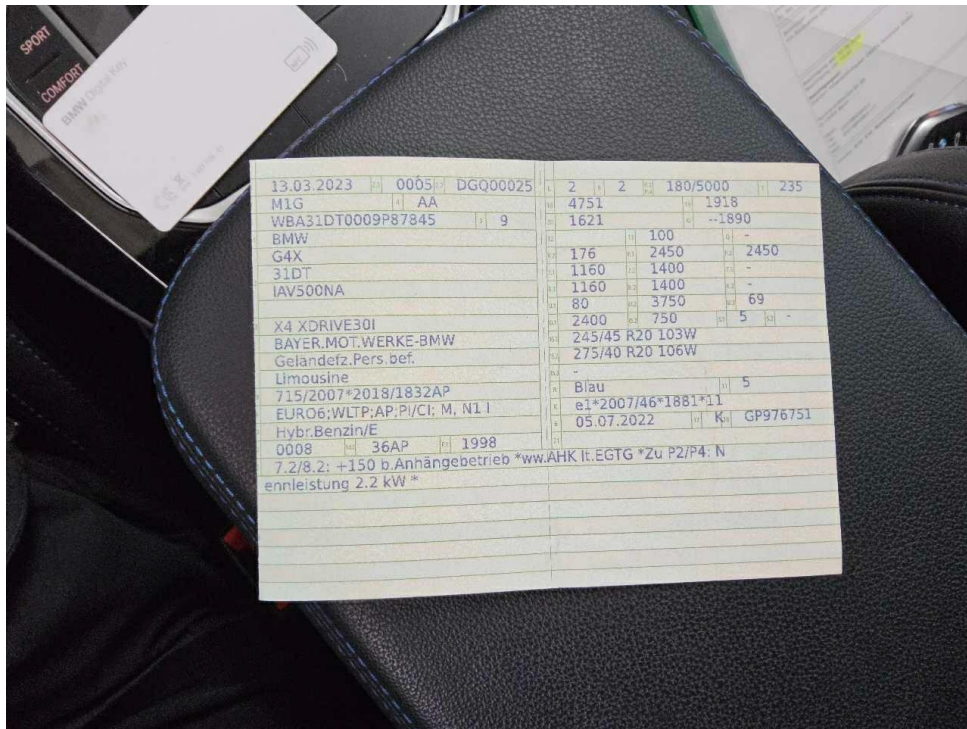 SPORT
COMFORT
BMW Digital Key
13.03.2023 0005 DGQ00025
M1G AA
WBA31DT0009P87845 9
BMW
G4X
31DT
IAV500NA
X4 XDRIVE30I
BAYER.MOT.WERKE-BMW
Geländefz.Pers.bef.
Limousine
715/2007*2018/1832AP
EURO6;WLTP;AP;PI/CI; M, N1 I
Hybr.Benzin/E
0008 36AP 1998
2 2 180/5000 235
4751 1918
1621 --1890
100 -
176 2450 2450
1160 1400 -
1160 1400 -
80 3750 69
2400 750 5 -
245/45 R20 103W
275/40 R20 106W
-
Blau 5
e1*2007/46*1881*11
05.07.2022 K GP976751
7.2/8.2: +150 b.Anhängebetrieb *ww.AHK lt.EGTG *Zu P2/P4: N
ennleistung 2.2 kW *